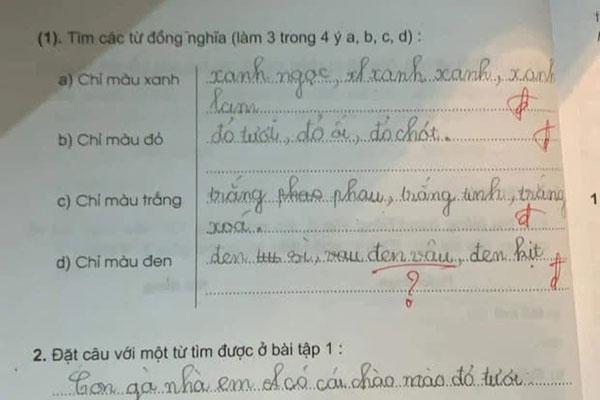 (1). Tìm các từ đồng nghĩa (làm 3 trong 4 ý a, b, c, d) :
a) Chỉ màu xanh xanh ngọc, xanh xanh, xanh
lam
đ
b) Chỉ màu đỏ đỏ tươi, đỏ ối, đỏ chót.
đ
c) Chỉ màu trắng trắng phau, trắng tinh, trắng
xoá.
đ
d) Chỉ màu đen đen sì, đen vâu, đen kịt
?
đ
1
2. Đặt câu với một từ tìm được ở bài tập 1 :
Con gà nhà em có cái chào mào đỏ tươi